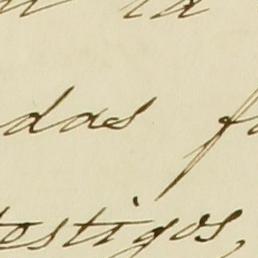 la
das fa
testigos,